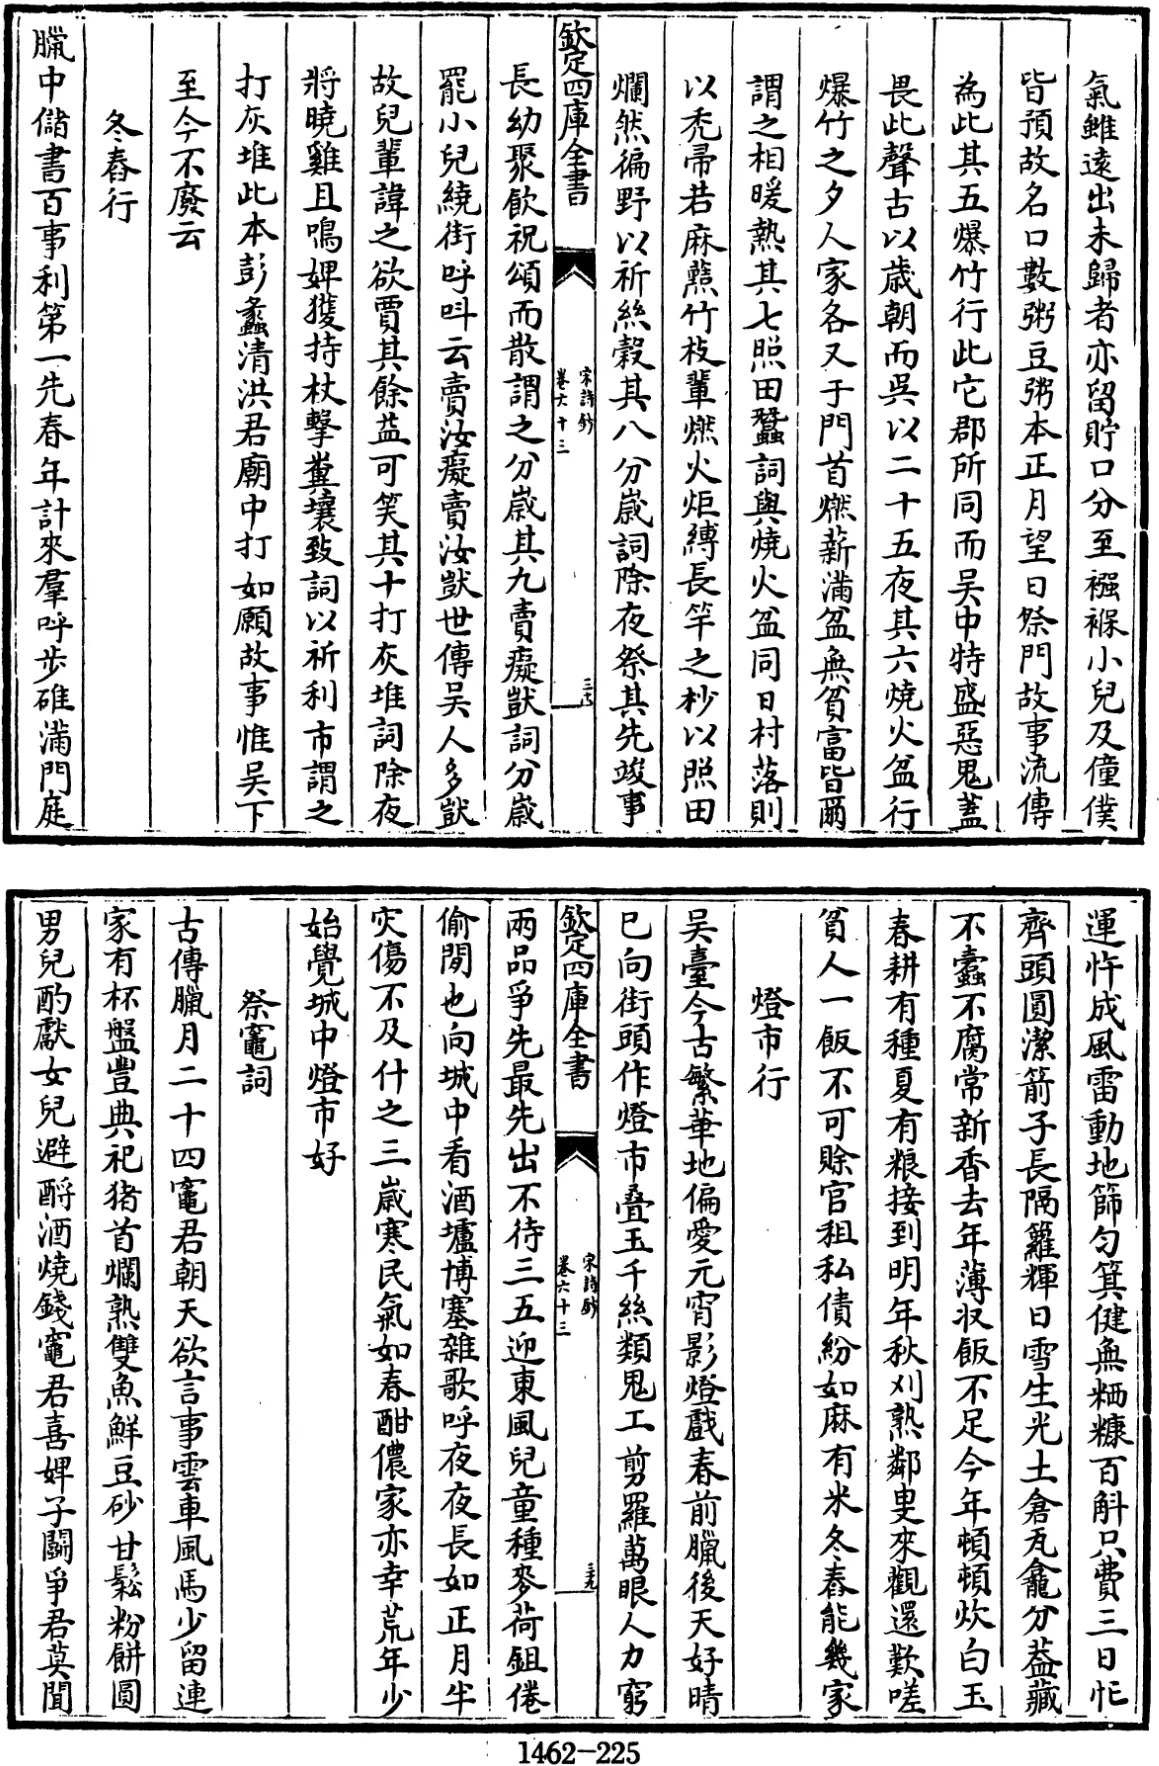 氣雖遠出未歸者亦留貯口分至襁褓小兒及僮僕
皆預故名口數粥豆粥本正月望日祭門故事流傳
為此其五爆竹行此它郡所同而吳中特盛惡鬼蓋
畏此聲古以歲朝而吳以二十五夜其六燒火盆行
爆竹之夕人家各又于門首燃薪滿盆無貧富皆爾
謂之相暖熱其七照田蠶詞與燒火盆同日村落則
以禿帚若麻䕸竹枝輩燃火炬縛長竿之杪以照田
爛然徧野以祈絲穀其八分歲詞除夜祭其先竣事
欽定四庫全書
宋詩鈔
卷六十三
三八
長幼聚飲祝頌而散謂之分歲其九賣癡獃詞分歲
罷小兒繞街呼叫云賣汝癡賣汝獃世傳吳人多獃
故兒輩諱之欲賈其餘益可笑其十打灰堆詞除夜
將曉雞且鳴婢獲持杖擊糞壤致詞以祈利市謂之
打灰堆此本彭蠡清洪君廟中打如願故事惟吳下
至今不廢云
冬舂行
臘中儲書百事利第一先舂年計來羣呼步碓滿門庭
運忤成風雷動地篩勻箕健無粞糠百斛只費三日忙
齊頭圓潔箭子長隔籮輝日雪生光土倉瓦龕分葢藏
不蠹不腐常新香去年薄收飯不足今年頓頓炊白玉
春耕有種夏有粮接到明年秋刈熟鄰叟來觀還歎嗟
貧人一飯不可賒官租私債紛如麻有米冬舂能幾家
燈市行
吳臺今古繁華地偏愛元宵影燈戲春前臘後天好晴
已向街頭作燈市疊玉千絲類鬼工剪羅萬眼人力窮
欽定四庫全書
宋詩鈔
卷六十三
三九
兩品爭先最先出不待三五迎東風兒童種麥荷鉏倦
偷閒也向城中看酒壚博塞雜歌呼夜夜長如正月半
灾傷不及什之三歲寒民氣如春酣儂家亦幸荒年少
始覺城中燈市好
祭竈詞
古傳臘月二十四竈君朝天欲言事雲車風馬少留連
家有杯盤豐典祀猪首爛熟雙魚鮮豆砂甘鬆粉餅圓
男兒酌獻女兒避酹酒燒錢竈君喜婢子鬬爭君莫聞
1462-225